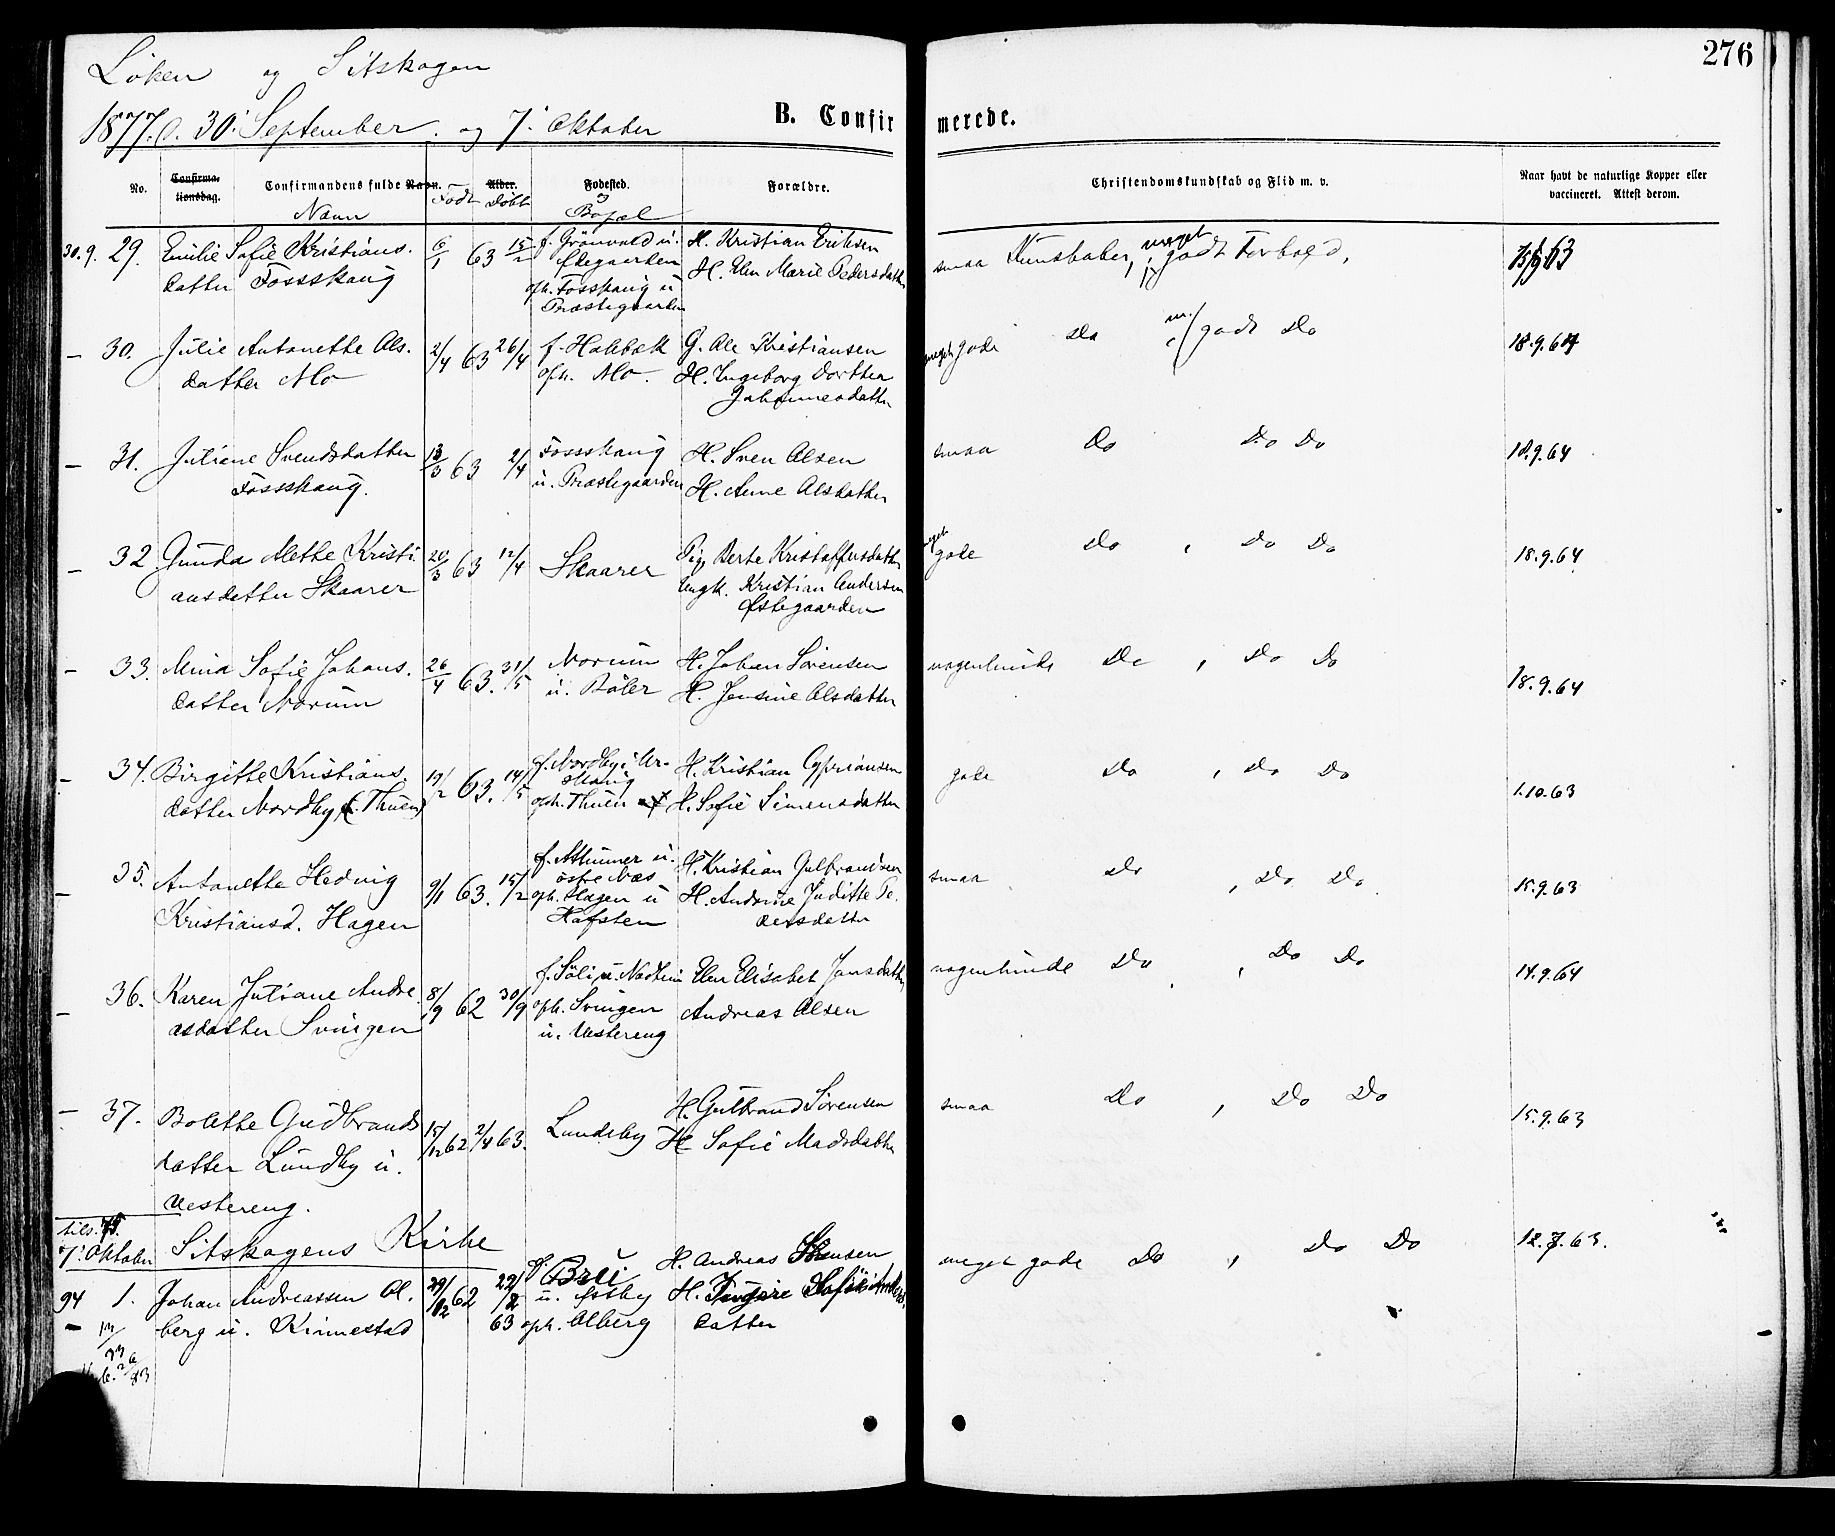 276
Løken og Sitskogen
1877. d. 30. September. og 7. Oktober
B. Confirmerede.
No.
Confirmationsdag.
Confirmandens fulde Navn.
Navn
Født
Alder.
Døbt
Fødested.
og
Bopæl
Forældre.
Christendomskundskab og Flid m. v.
Naar havt de naturlige Kopper eller
vaccineret. Attest derom.
30.9. 29. Emilie Sofie Kristians.
datter Fossskaug
6/1 63 15/2
f. Grønvold u.
Østegaarden
oph. Fossskaug u
Præstegaarden
H. Kristian Eriksen
H. Elen Marie Pedersdatter
smaa Kunskaber, meget godt Forhold,
15/9 63
– 30. Julie Antonette Ols.
datter Mo
2/4 63 26/4
f. Hakbæk
oph. Mo.
G. Ole Kristiansen
H. Ingeborg Dorthea
Johannesdatter
meget gode Do m/ godt Do
18.9.64
– 31. Juliane Svendsdatter
Fossskaug.
13/3 63 2/4
Fossskaug
u. Præstegaarden
H. Sven Olsen
H. Anne Olsdatter
smaa Do Do Do
18.9.64
– 32 Gunda Methe Kristi
ansdatter Skaarer
20/3 63 12/4
Skaarer
Pig. Berte Kristoffersdatter
Ungk. Kristian Andersen
Østegaarden
meget gode Do , Do Do
18.9.64
– 33. Mina Sofie Johans.
datter Norum
26/4 63. 31/5
Norum
u. Bøler
H. Johan Sørensen
H. Jensine Olsdatter
nogenlunde Do , Do Do
18.9.64
– 34. Birgitte Kristians.
datter Nordby (f. Thuen)
19/2 63. 14/5
f. Nordby i Ur-
skaug
oph. Thuen
H. Kristian Cypriansen
H. Sofie Simensdatter
gode Do , Do Do
1.10.63
– 35. Antonette Hedvig
Kristiansd. Hagen
9/1 63. 15/2
østre Næs
oph. Hagen u
Hafsten
H. Kristian Gulbrandsen
H. Andrine Juditte Pe.
dersdatter
smaa Do , Do Do
15.9.63
– 36. Karen Juliane Andre
asdatter Svingen
8/9 62 30/9
f. Søli u.
oph. Svingen
u. Vestereng
Elen Elisabet Jonsdatter,
Andreas Olsen
nogenlunde Do , Do Do
14.9.64
– 37. Bolette Gudbrands
datter Lundby u.
Vestereng.
15/12 62 2/4 63.
Lundeby
H. Gulbrand Sørensen
H. Sofie Madsdatter
smaa Do , Do Do
15.9.63
tils. 75.
7. Oktober Sitskogens Kirke
94 1. Johan Andreassen Ol.
berg u. Kinnestad
29/12 62
63
f. Brei
u. Østby
oph. Olberg
H. Andreas
H. Sofie Anders.
datter
meget gode Do , Do Do
12.7.63.